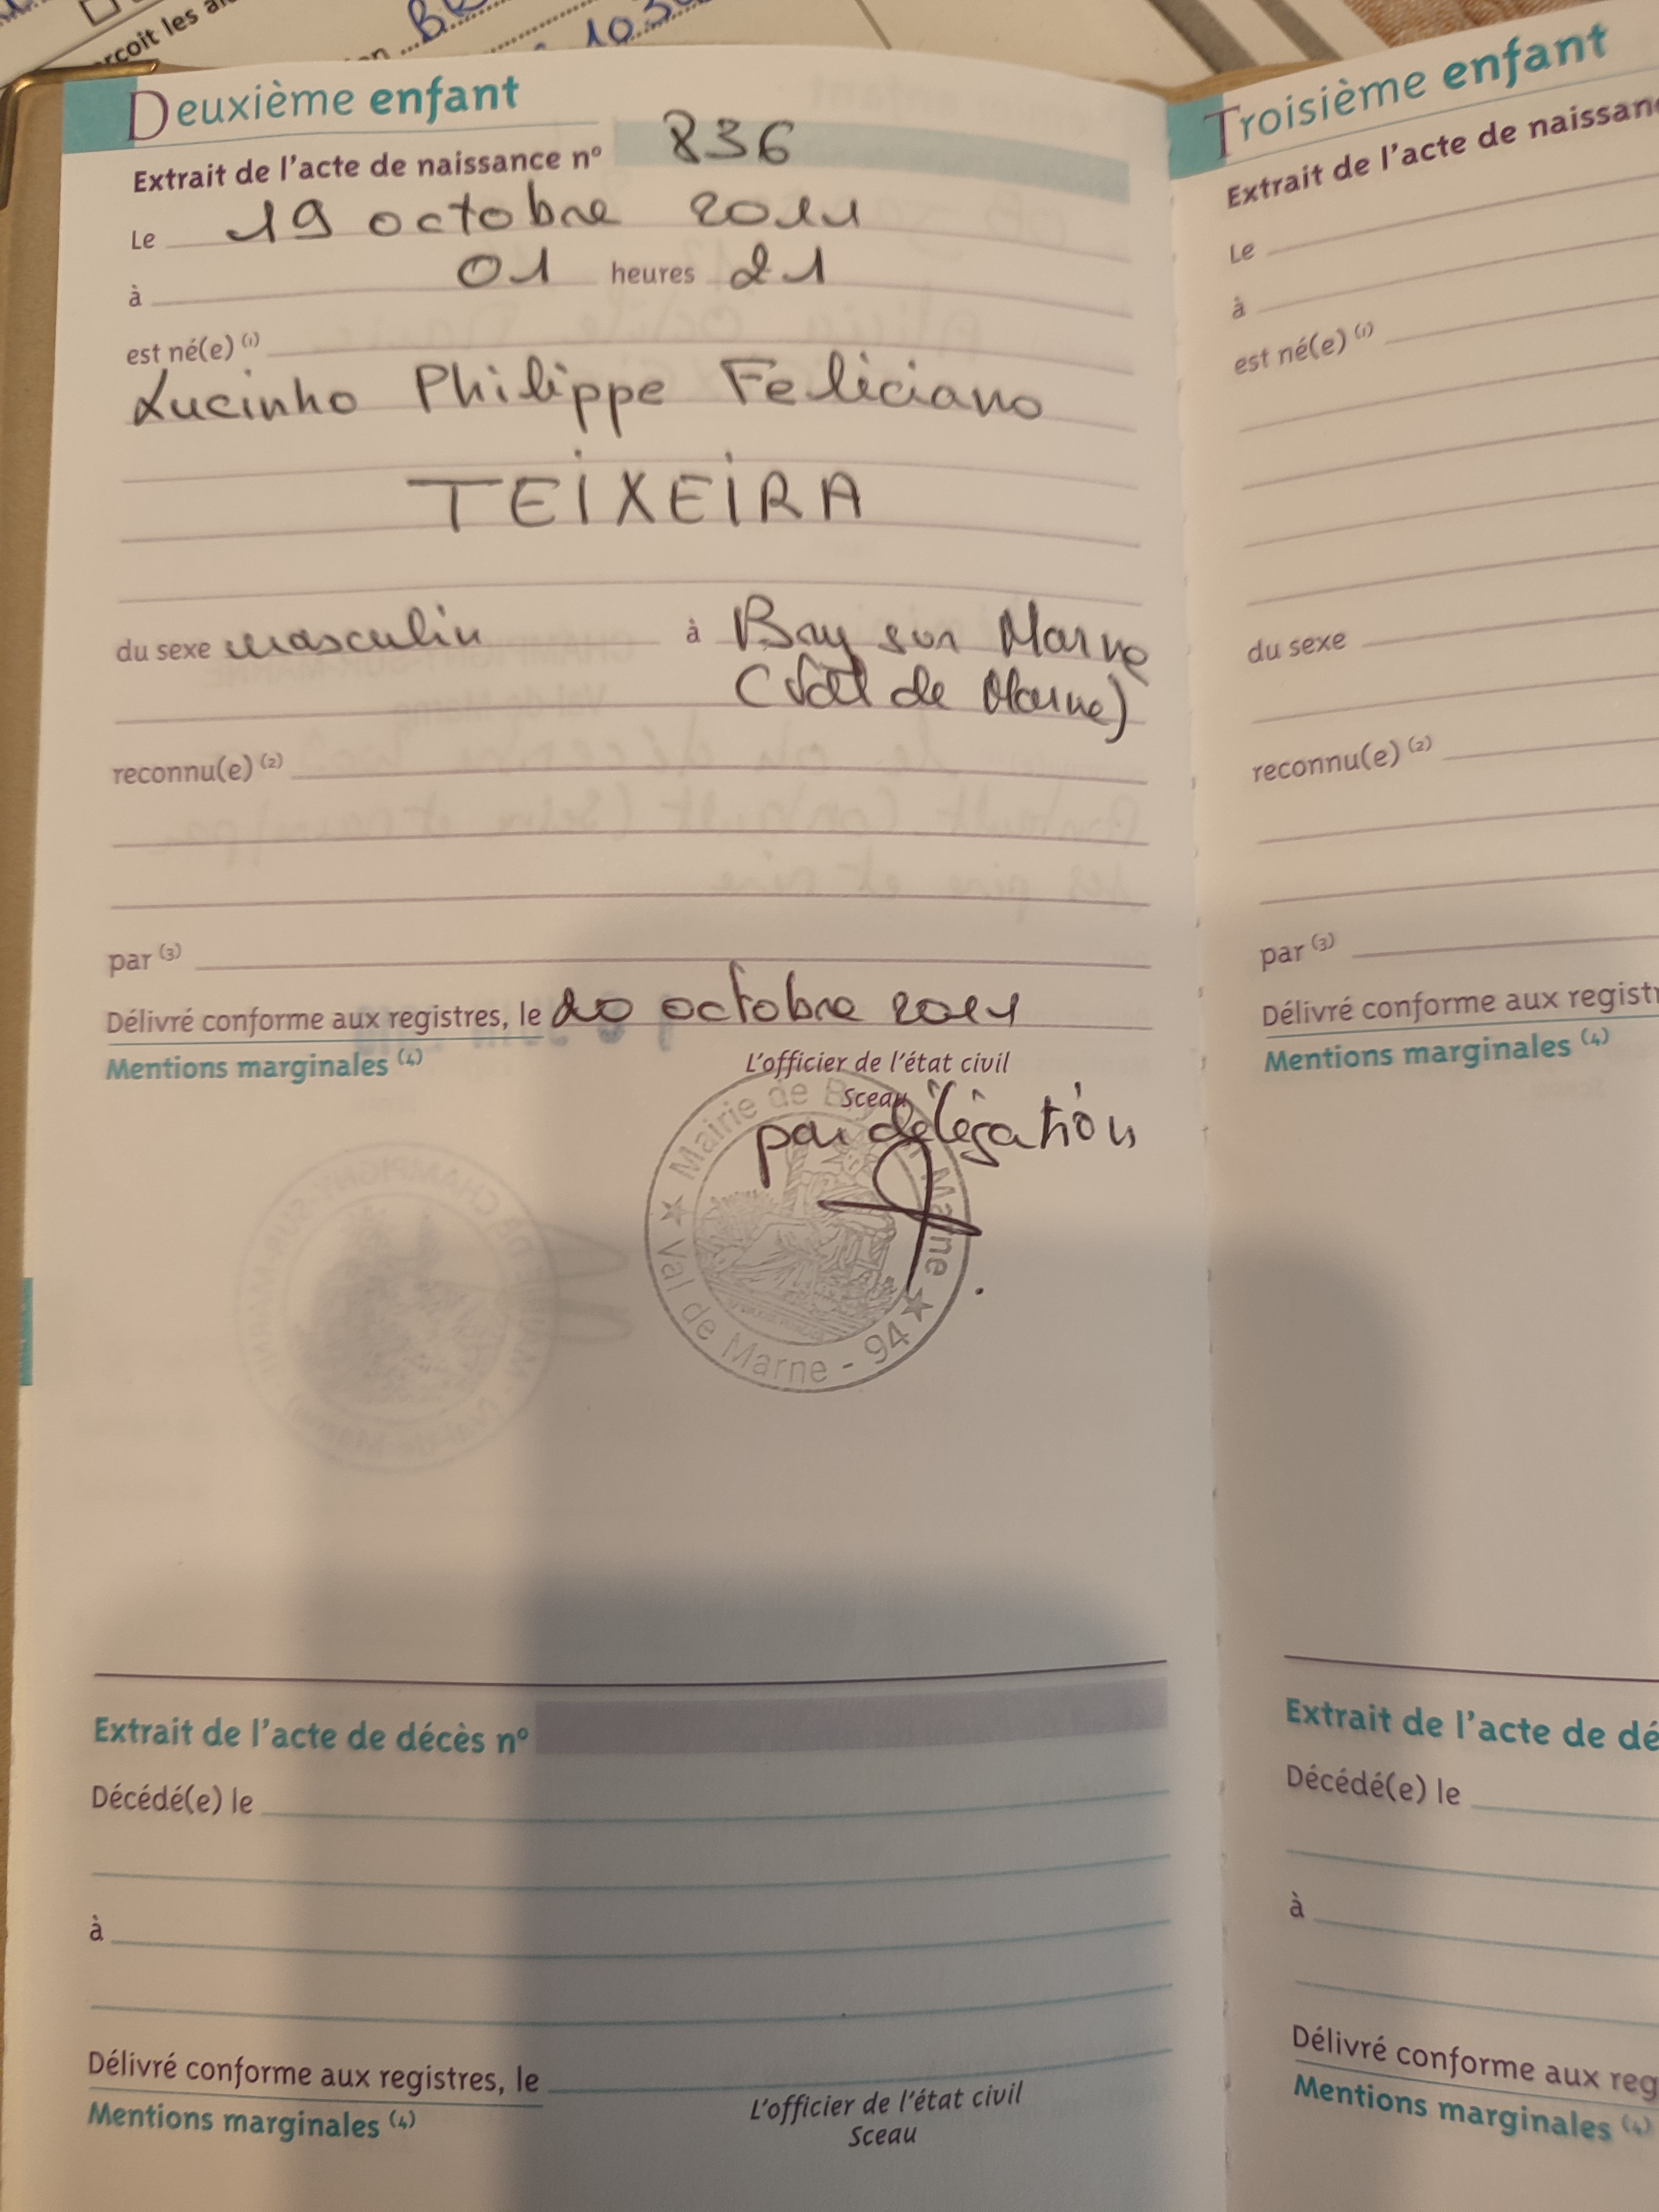 çoit les a
Deuxième enfant
Extrait de l'acte de naissance nº 836
Le 19 octobre 2011
à 01 heures 21
est né(e) (1)
Lucinho Philippe Feliciano
TEIXEIRA
du sexe masculin à Bry sur Marne
(Val de Marne)
reconnu(e) (2)
par (3)
Délivré conforme aux registres, le 20 octobre 2011
Mentions marginales (4)
L'officier de l'état civil
Sceau
par délégation
Mairie de Marne
Val de Marne - 94
Extrait de l'acte de décès nº
Décédé(e) le
à
Délivré conforme aux registres, le
Mentions marginales (4)
L'officier de l'état civil
Sceau
Troisième enfant
Extrait de l'acte de naissan
Le
à
est né(e) (1)
du sexe
reconnu(e) (2)
par (3)
Délivré conforme aux regist
Mentions marginales (4)
Extrait de l'acte de dé
Décédé(e) le
à
Délivré conforme aux reg
Mentions marginales (4)